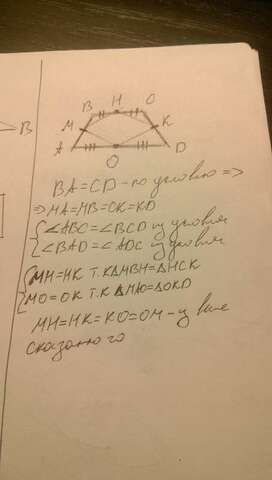 В
В Н С
М К
А О D
BA=CD - по условию =>
=> MA=MB=CK=KD
{∠ABC=∠BCD из условия
∠BAD=∠ADC из условия
{MH=HK т.к ΔMBH=ΔHCK
MO=OK т.к ΔMAO=ΔOKD
MH=HK=KO=OM - из выше
сказанного